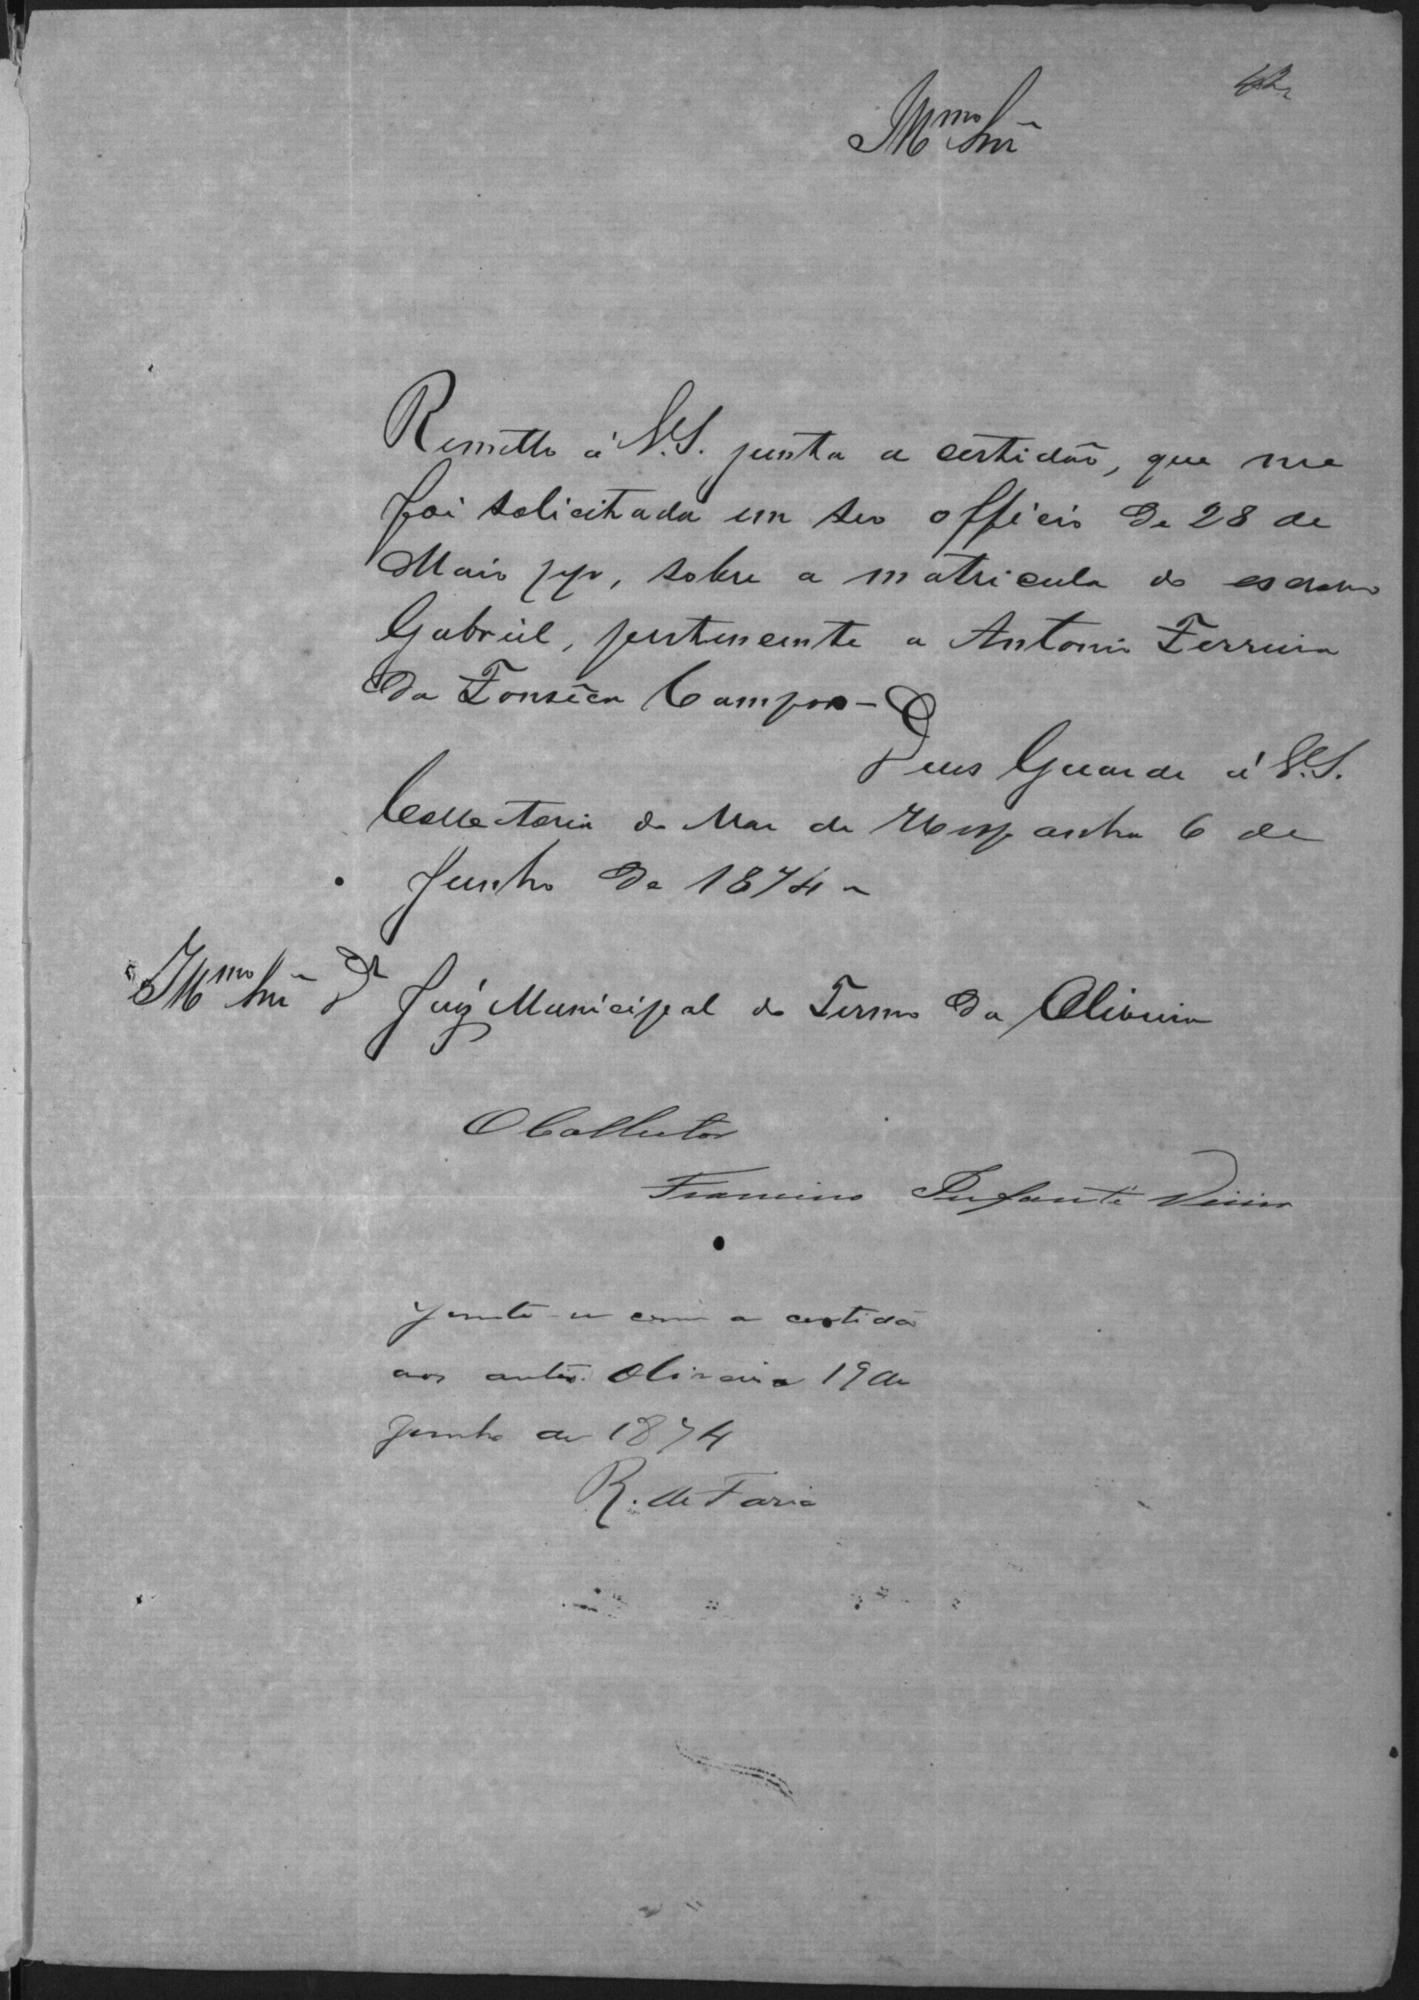 Illmo Snr
Remetto á V.S. junta a certidão, que me
foi solicitada em seo officio de 28 de
Maio pp, sobre a matricula do escravo
Gabriel, pertencente a Antonio Ferreira
da Fonsêca Campos-
Deus Guarde á V.S.
Collectoria do Mar de Hespanha 6 de
Junho de 1874
Illmo Snr Dr Juiz Municipal do Termo da Oliveira
O Collector
Francisco Infante Vieira
Junte-se com a certidão
aos autos. Oliveira 19 de
Junho de 1874
R. de Faria